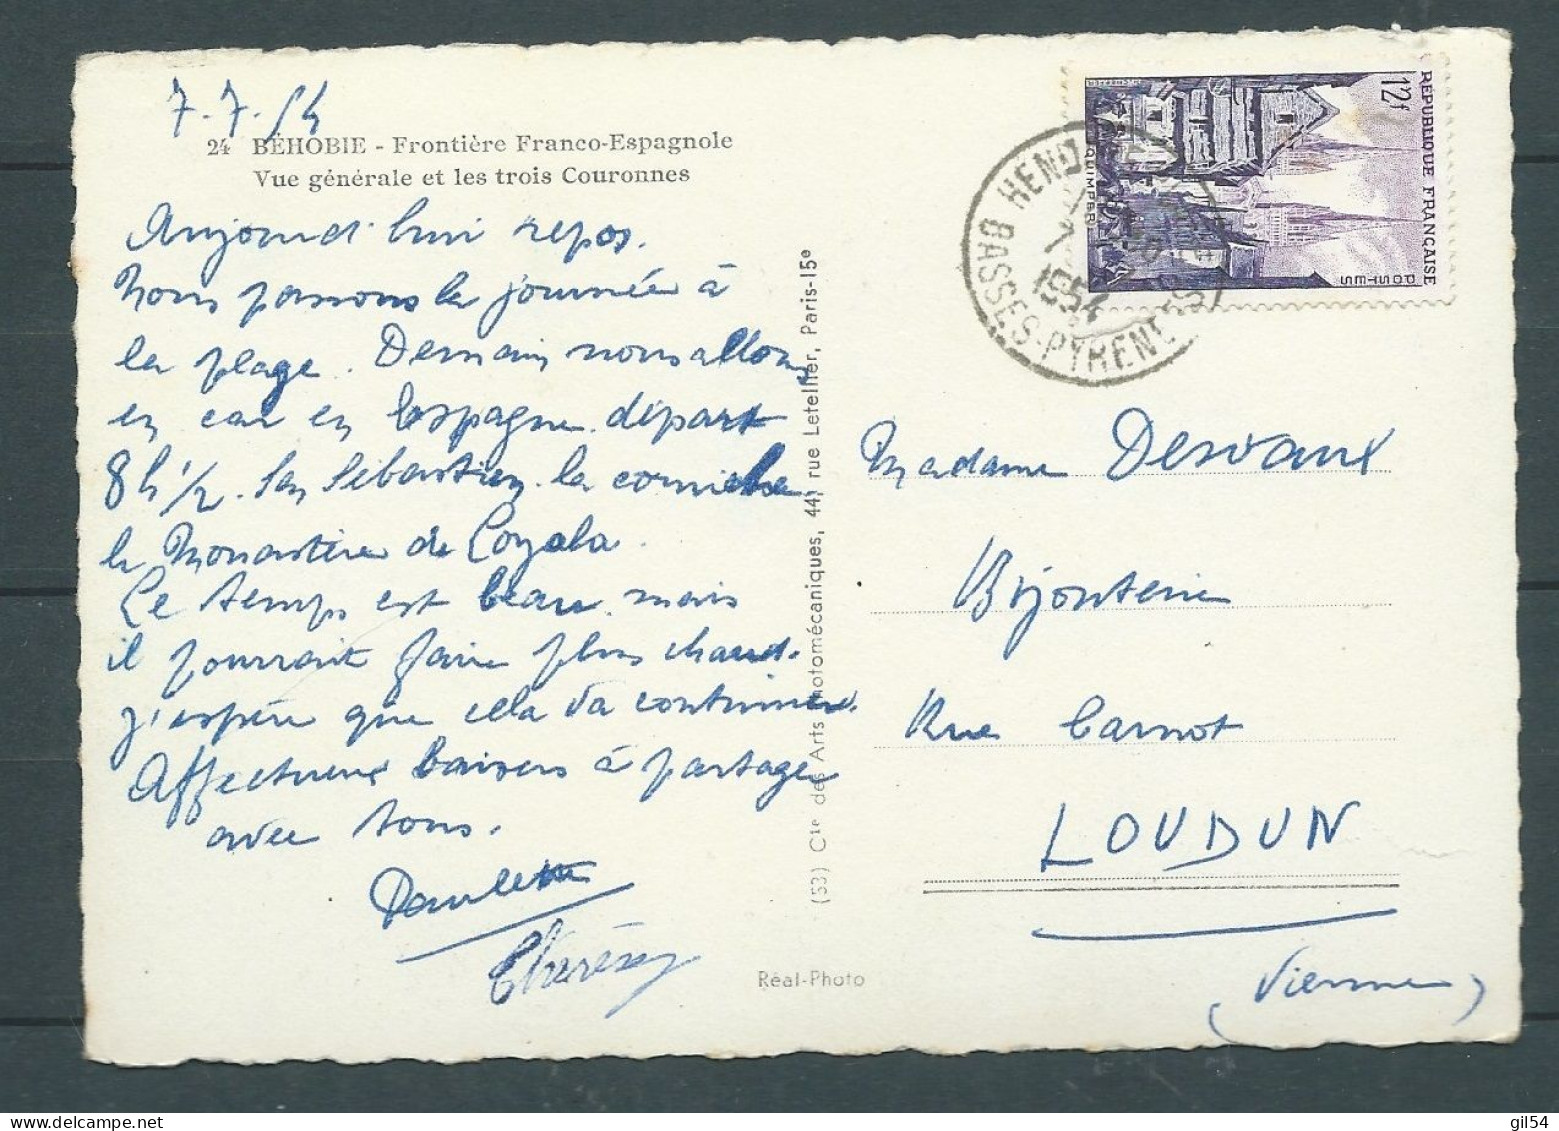 7-7-54
24 BÉHOBIE - Frontière Franco-Espagnole
Vue générale et les trois Couronnes
Aujourd'hui repos.
Nous passons la journée à
la plage. Demain nous allons
en car en Espagne. départ
8h 1/2. San Sébastien. la corniche
le Monastère de Loyala.
Le temps est beau. mais
il pourrait faire plus chaud.
j'espère que cela va continuer.
Affectueux baisers à partager
avec tous.
Paulette
Thérésy
(53) Cie des Arts Photomécaniques, 44, rue Letellier, Paris-15e
Réal-Photo
RÉPUBLIQUE FRANÇAISE
12f
POSTES
QUIMPER
HENDAYE
7
1954
BASSES-PYRENEES
Madame Desvaux
Bijouterie
Rue Carnot
LOUDUN
(Vienne)
gil54